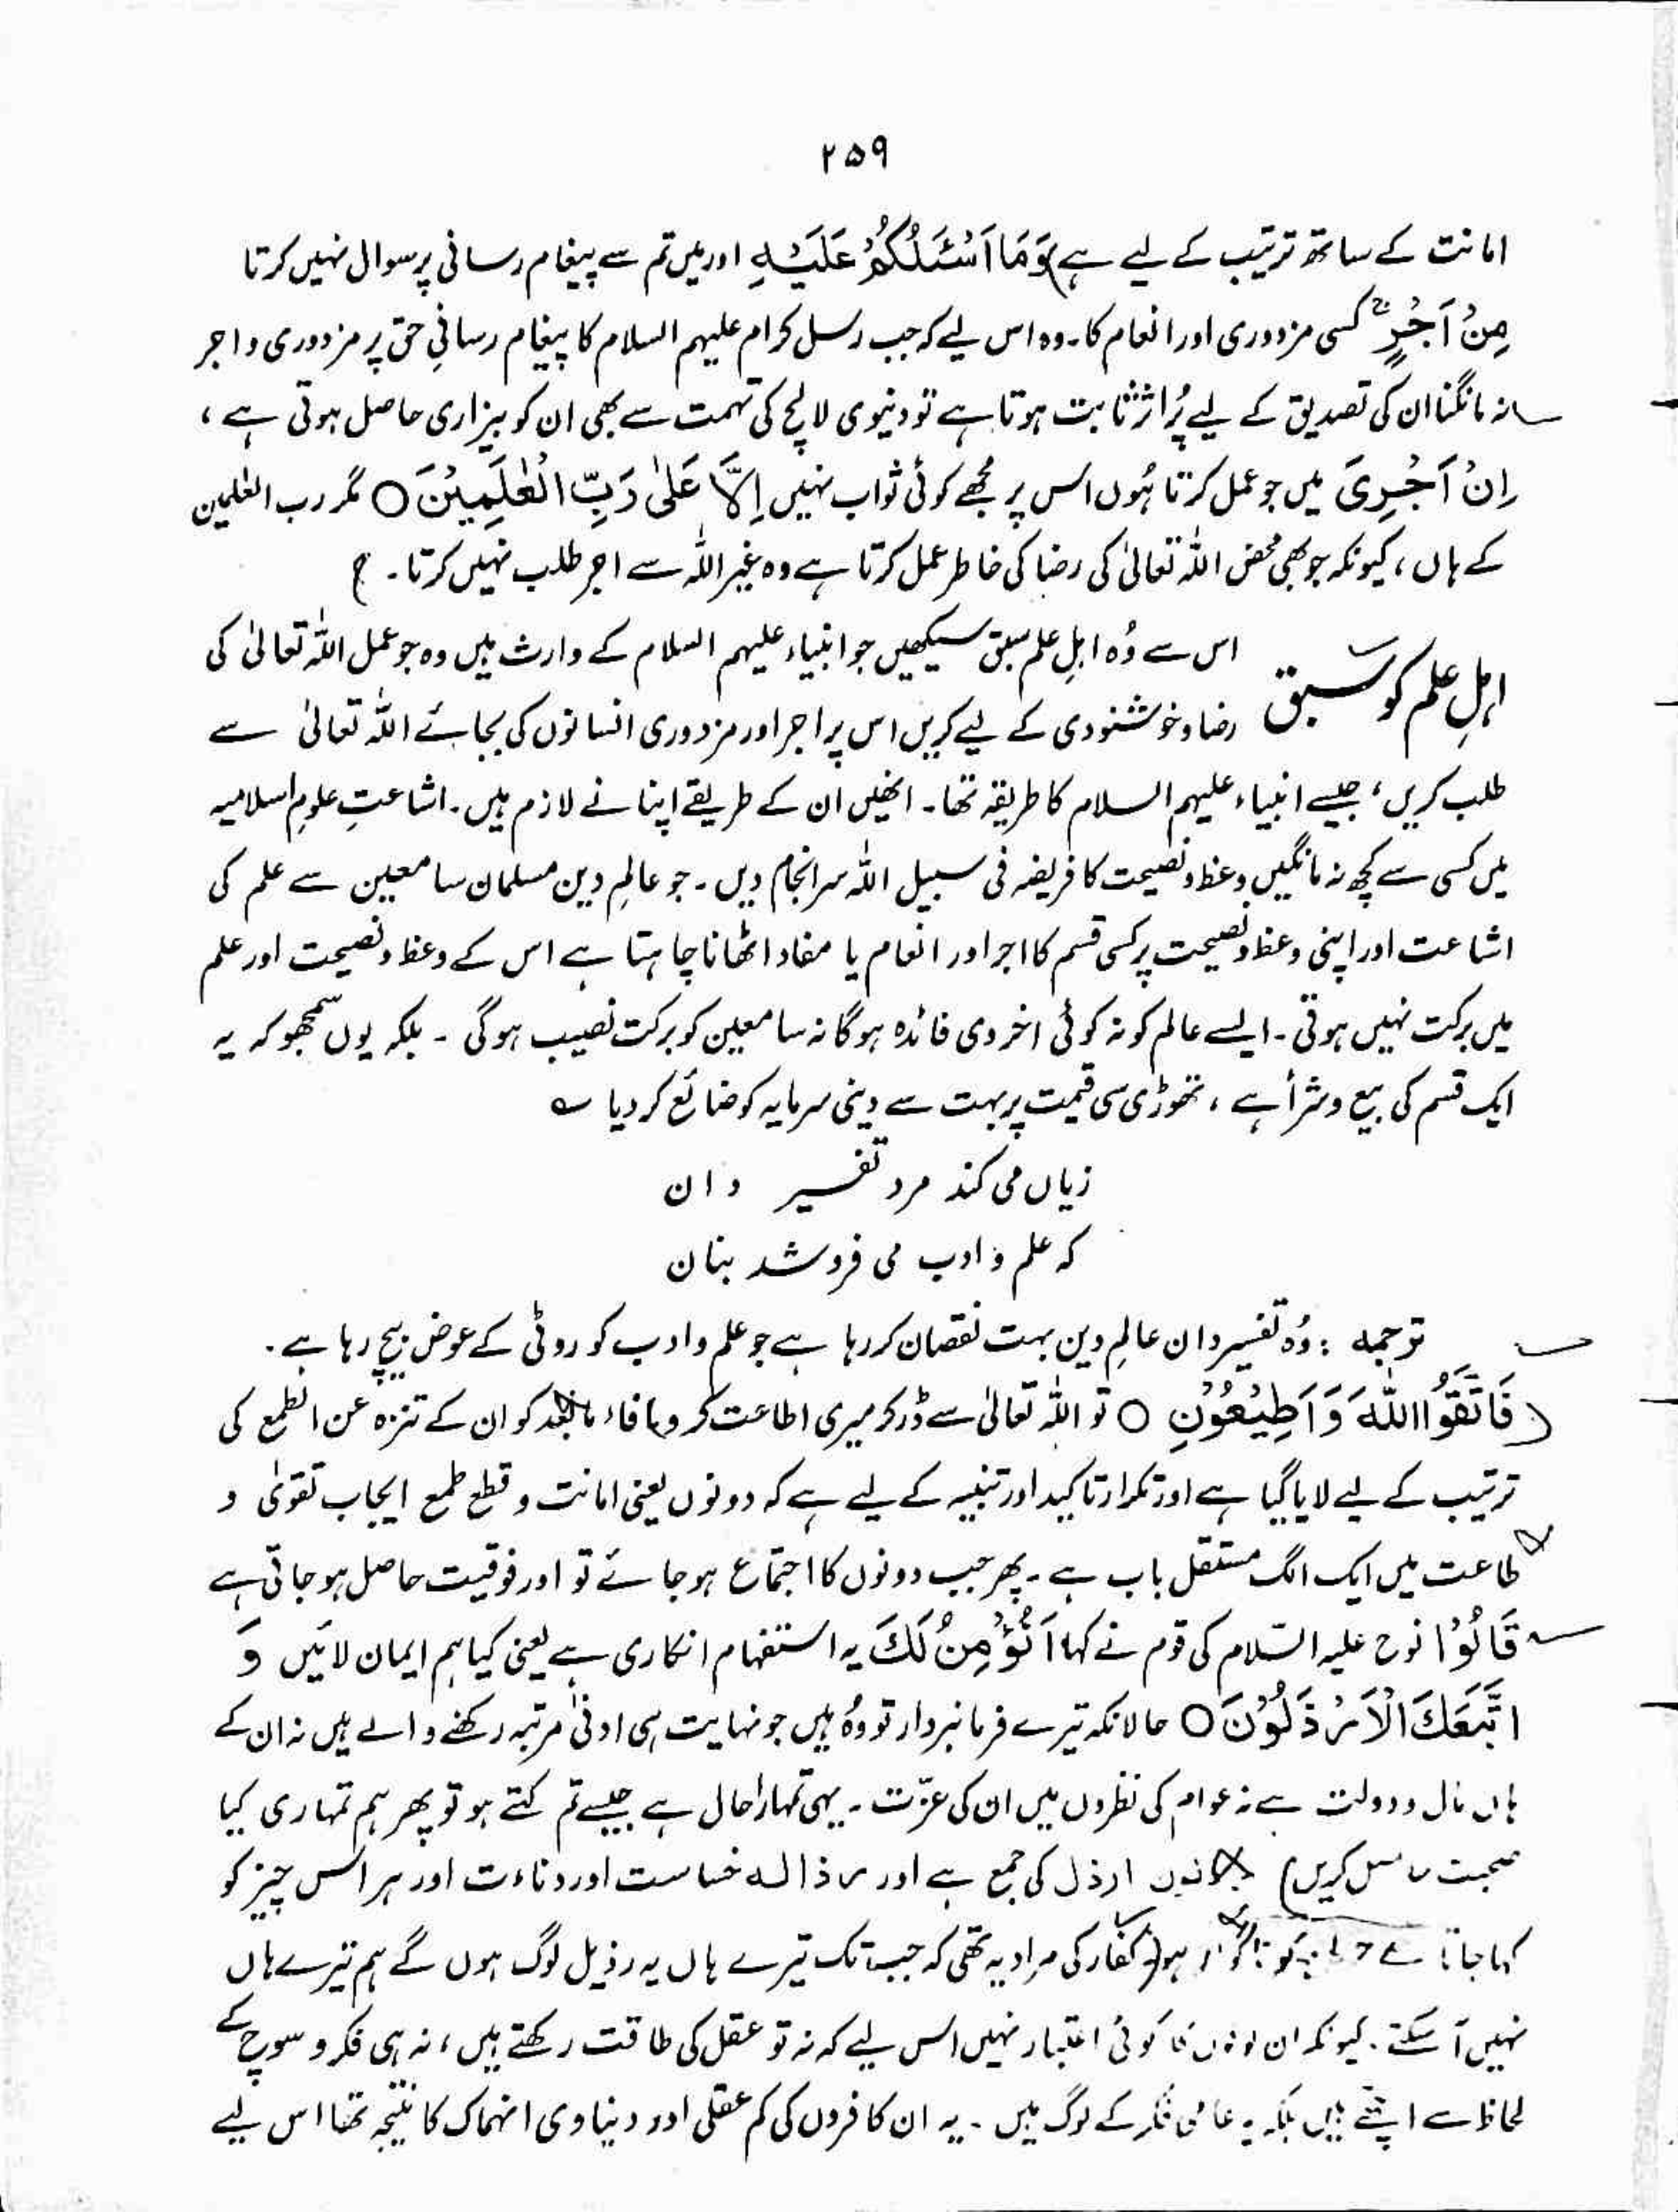 ۲۵۹
امانت کے ساتھ ترتیب کے لیے ہے) وَمَا اَسْئَلُكُمْ عَلَيْهِ اور میں تم سے پیغام رسانی پر سوال نہیں کرتا
مِنْ اَجْرٍ ۚ کسی مزدوری اور انعام کا۔ وہ اس لیے کہ جب رسل کرام علیہم السلام کا پیغام رسانیِ حق پر مزدوری و اجر
نہ مانگنا ان کی تصدیق کے لیے پُر اثر ثابت ہوتا ہے تو دنیوی لالچ کی تہمت سے بھی ان کو بیزاری حاصل ہوتی ہے ،
اِنْ اَجْرِیَ میں جو عمل کرتا ہُوں اس پر مجھے کوئی ثواب نہیں اِلَّا عَلٰی رَبِّ الْعٰلَمِیْنَ ○ مگر رب العٰلمین
کے ہاں ، کیونکہ جو بھی محض اللہ تعالیٰ کی رضا کی خاطر عمل کرتا ہے وہ غیر اللہ سے اجر طلب نہیں کرتا۔
اہلِ علم کو سبق اس سے وُہ اہلِ علم سبق سیکھیں جو انبیاء علیہم السلام کے وارث ہیں وہ جو عمل اللہ تعالیٰ کی
رضا و خوشنودی کے لیے کریں اس پر اجر اور مزدوری انسانوں کی بجائے اللہ تعالیٰ سے
طلب کریں ، جیسے انبیاء علیہم السلام کا طریقہ تھا۔ انھیں ان کے طریقے اپنانے لازم ہیں۔ اشاعتِ علومِ اسلامیہ
میں کسی سے کچھ نہ مانگیں وعظ و نصیحت کا فریضہ فی سبیل اللہ سرانجام دیں۔ جو عالمِ دین مسلمان سامعین سے علم کی
اشاعت اور اپنی وعظ و نصیحت پر کسی قسم کا اجر اور انعام یا مفاد اٹھانا چاہتا ہے اس کے وعظ و نصیحت اور علم
میں برکت نہیں ہوتی۔ ایسے عالم کو نہ کوئی اخروی فائدہ ہوگا نہ سامعین کو برکت نصیب ہوگی ۔ بلکہ یوں سمجھو کہ یہ
ایک قسم کی بیع و شرأ ہے ، تھوڑی سی قیمت پر بہت سے دینی سرمایہ کو ضائع کر دیا ؎
زیاں می کند مرد تفسیر دان
کہ علم و ادب می فروشد بنان
ترجمہ : وُہ تفسیر دان عالمِ دین بہت نقصان کر رہا ہے جو علم و ادب کو روٹی کے عوض بیچ رہا ہے ۔
(فَاتَّقُوا اللّٰهَ وَاَطِیْعُوْنِ ○ تو اللہ تعالیٰ سے ڈر کر میری اطاعت کرو) فاء مابعد کو ان کے تنزہ عن الطمع کی
ترتیب کے لیے لایا گیا ہے اور تکرار تاکید اور تنبیہ کے لیے ہے کہ دونوں یعنی امانت و قطع طمع ایجاب تقویٰ و
طاعت میں ایک الگ مستقل باب ہے ۔ پھر جب دونوں کا اجتماع ہو جائے تو اور فوقیت حاصل ہو جاتی ہے
قَالُوْا نوح علیہ السّلام کی قوم نے کہا اَنُؤْمِنُ لَكَ یہ استفہام انکاری ہے یعنی کیا ہم ایمان لائیں وَ
اتَّبَعَكَ الْاَرْذَلُوْنَ ○ حالانکہ تیرے فرمانبردار تو وُہ ہیں جو نہایت ہی ادنیٰ مرتبہ رکھنے والے ہیں نہ ان کے
ہاں مال و دولت ہے نہ عوام کی نظروں میں ان کی عزّت ۔ یہی تمہارا حال ہے جیسے تم کہتے ہو تو پھر ہم تمہاری کیا
صحبت حاصل کریں) ارذل کی جمع ہے اور رذالہ خساست اور دناءت اور ہر اس چیز کو
کہا جاتا ہے ہو) کفار کی مراد یہ تھی کہ جب تک تیرے ہاں یہ رذیل لوگ ہوں گے ہم تیرے ہاں
نہیں آ سکتے ۔ کیونکہ ان کا کوئی اعتبار نہیں اس لیے کہ نہ تو عقل کی طاقت رکھتے ہیں ، نہ ہی فکر و سوچ کے
لحاظ سے اچھے ہیں بلکہ یہ فکر کے لوگ ہیں ۔ یہ ان کافروں کی کم عقلی اور دنیاوی انہماک کا نتیجہ تھا اس لیے